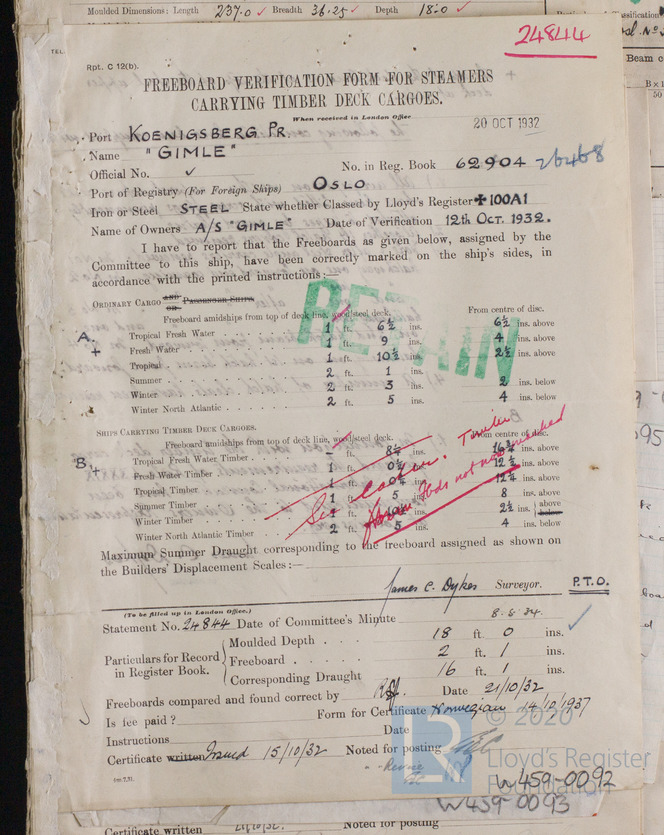 Moulded Dimensions: Length 237.0 Breadth 36.25 Depth 18.0
24844
TEL.
Rpt. C 12(b).
FREEBOARD VERIFICATION FORM FOR STEAMERS
CARRYING TIMBER DECK CARGOES.
When received in London Office
20 OCT 1932
Port KOENIGSBERG PR.
Name "GIMLE"
Official No. ✓ No. in Reg. Book 62904 26468
Port of Registry (For Foreign Ships) OSLO
Iron or Steel STEEL State whether Classed by Lloyd's Register ✠100A1
Name of Owners A/S "GIMLE" Date of Verification 12th OCT. 1932.
I have to report that the Freeboards as given below, assigned by the
Committee to this ship, have been correctly marked on the ship's sides, in
accordance with the printed instructions:—
RETAIN
ORDINARY CARGO AND OR PASSENGER SHIPS
Freeboard amidships from top of deck line, wood/steel deck. From centre of disc.
A. Tropical Fresh Water 1 ft. 6½ ins. 6½ ins. above
+ Fresh Water 1 ft. 9 ins. 4 ins. above
Tropical 1 ft. 10½ ins. 2½ ins. above
Summer 2 ft. 1 ins.
Winter 2 ft. 3 ins. 2 ins. below
Winter North Atlantic 2 ft. 5 ins. 4 ins. below
SHIPS CARRYING TIMBER DECK CARGOES.
Freeboard amidships from top of deck line, wood/steel deck. From centre of disc.
B. Tropical Fresh Water Timber – ft. 8¼ ins. 16¾ ins. above
+ Fresh Water Timber 1 ft. 0½ ins. 12½ ins. above
Tropical Timber 1 ft. 0¾ ins. 12¼ ins. above
Summer Timber 1 ft. 5 ins. 8 ins. above
Winter Timber ft. ins. 2½ ins. above below
Winter North Atlantic Timber 2 ft. 5 ins. 4 ins. below
Timber
not now marked
Maximum Summer Draught corresponding to the freeboard assigned as shown on
the Builders' Displacement Scales:—
James C. Dykes Surveyor. P.T.O.
(To be filled up in London Office.)
Statement No. 24844 Date of Committee's Minute 8.8.34.
Particulars for Record in Register Book.
Moulded Depth 18 ft. 0 ins.
Freeboard 2 ft. 1 ins.
Corresponding Draught 16 ft. 1 ins.
Freeboards compared and found correct by Date 21/10/32
Is fee paid? Form for Certificate Norwegian 14/10/1937
Instructions Date
Certificate written Issued 15/10/32 Noted for posting
© 2020
Lloyd's Register
Foundation
W459-0092
W459-0093
Certificate written 21/10/32. Noted for posting